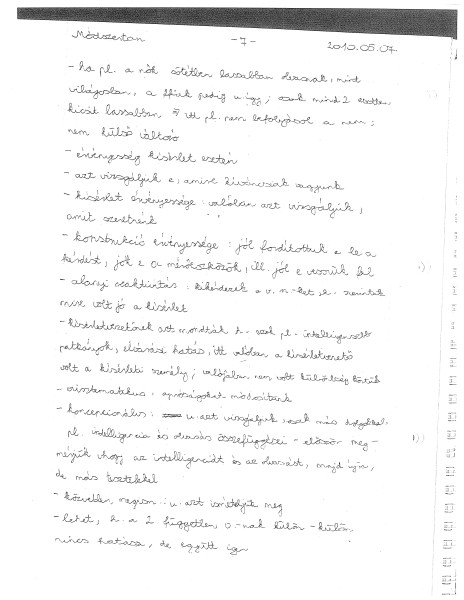 Módszertan -7- 2010.05.07
- ha pl. a nők sötétben lassabban olvasnak, mint
világosban, a férfiak pedig ugyanígy, csak mind 2 esetben
kicsit lassabban → itt pl. nem befolyásol a nem;
nem külső változó
- érvényesség kísérlet esetén
- azt vizsgáljuk e, amire kíváncsiak vagyunk
- kísérlet érvényessége: valóban azt vizsgáljuk,
amit szeretnénk
- konstrukció érvényessége: jól fordítottuk e le a
kérdést, jók e a mérőeszközök, ill. jól e vesszük fel
- alanyi szaktintás: kikérdezzük a v.sz.-ket, h. szerintük
mire volt jó a kísérlet
- kísérletvezetőnek azt mondták h. ezek pl. intelligensebb
patkányok, elvárási hatás, itt valóban a kísérletvezető
volt a kísérleti személy; valójában nem volt különbség köztük
- szisztematikus: apróságokat módosítunk
- koncepcionális: u. azt vizsgáljuk, csak más dolgokkal.
pl. intelligencia és olvasás összefüggései - először meg-
mérjük vhogy az intelligenciát és az olvasást, majd újra,
de más tesztekkel
- közvetlen, negsm: u. azt ismételjük meg
- lehet, h. a 2 független v.-nak külön-külön
nincs hatása, de együtt igen